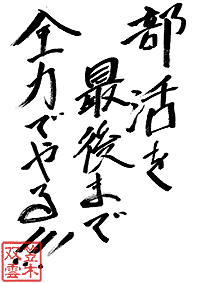 部活を
最後まで
全力でやる!!!
笠木
双雲